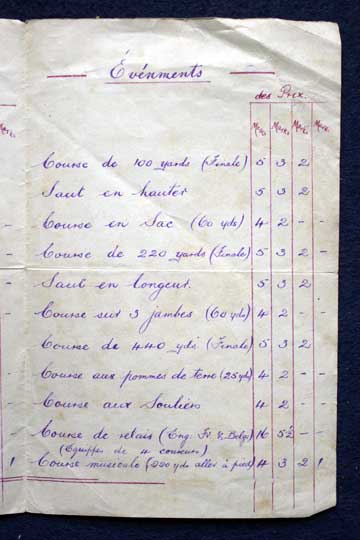 Événments
des Prix.
Mark. Marks. Marks. Mark. Mark.
Course de 100 yards (Finale) 5 3 2
Saut en hauter 5 3 2
- Course en Sac (60 yds) 4 2 - -
- Course de 220 yards (Finale) 5 3 2 -
Saut en longeur. 5 3 2
- Course sur 3 jambes (60 yds) 4 2 - -
Course de 440 yds (Finale) 5 3 2
- Course aux pommes de terre (25 yds) 4 2 - -
- Course aux Souliers 4 2 -
Course de relais (Eng. Fr. & Belge) 16 5½ - -
(Equippes de 4 coureurs)
1 Course musicale (220 yds aller à pied) 4 3 2 1